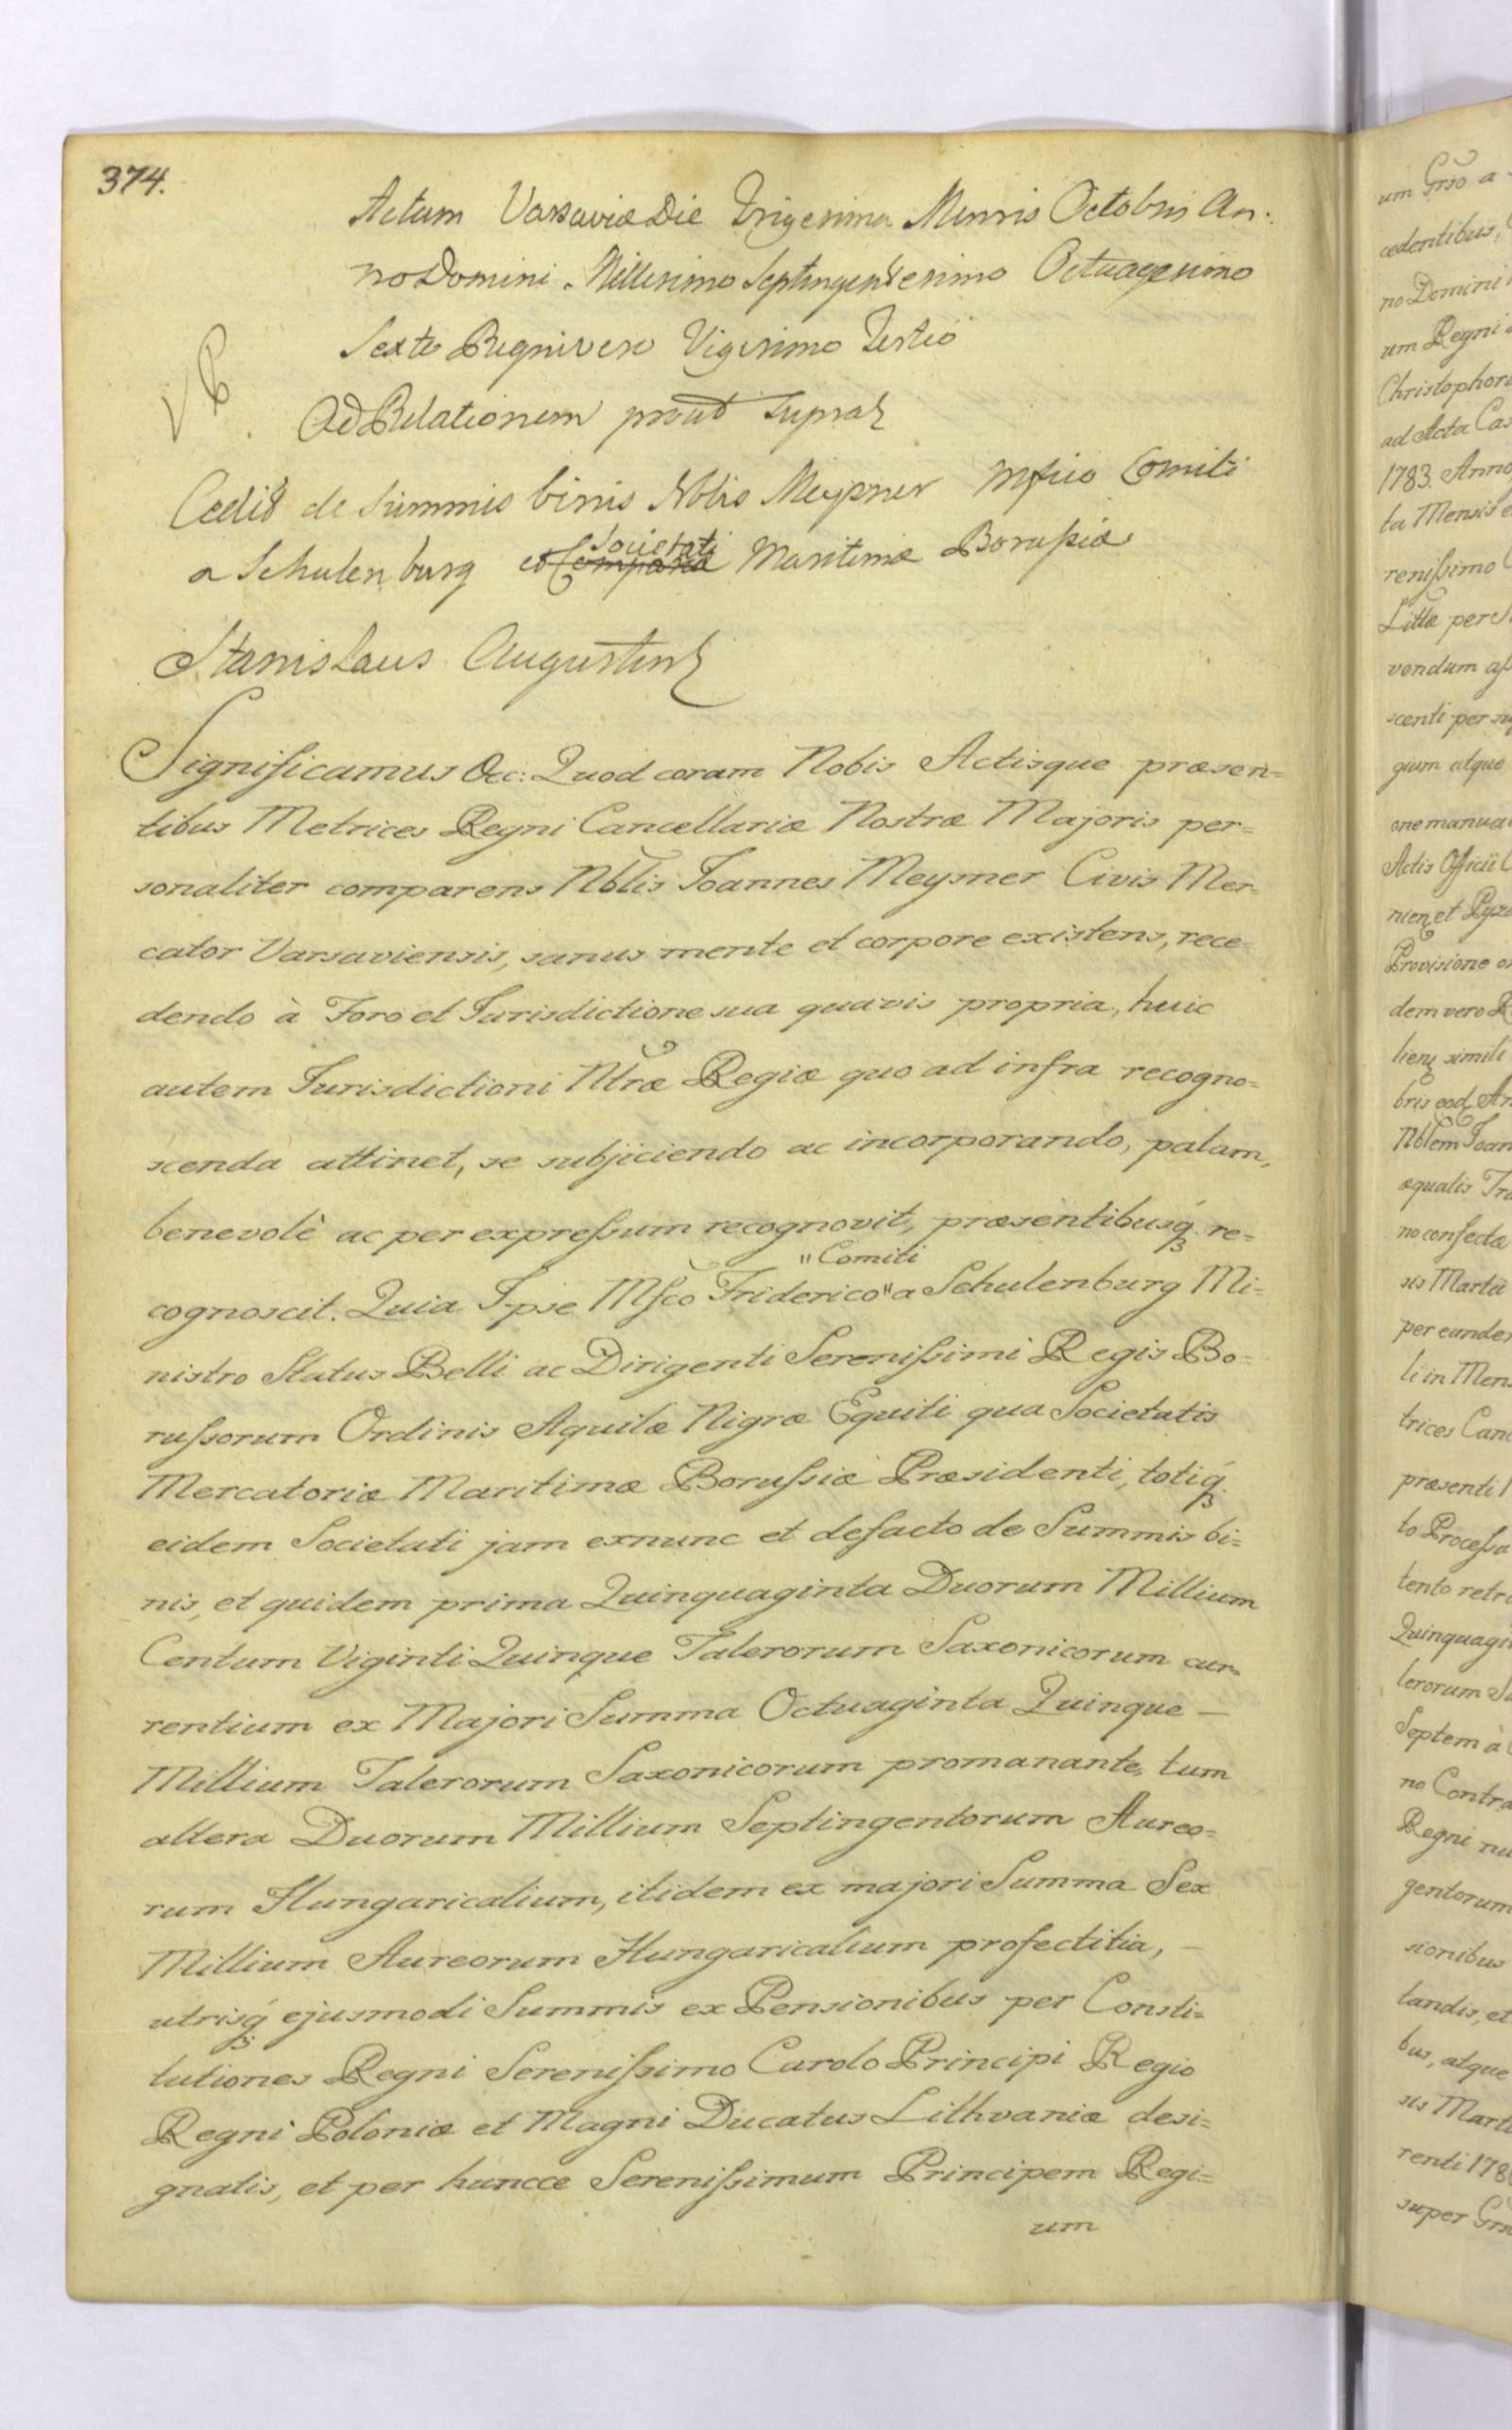 374.
Actum Varsaviæ Die Trigesima Mensis Octobris An-
no Domini Millesimo Septingentesimo Octuagesimo
Sexto Regni vero Vigesimo Tertio
Ad Relationem prout supra
Cedit de Summis binis Nblis Meysner Mfico Comiti
a Schulenburg et Compania Societati Maritimæ Borussiæ
Stanislaus Augustus
Significamus &c: Quod coram Nobis Actisque præsen=
tibus Metrices Regni Cancellariæ Nostræ Majoris per=
sonaliter comparens Nblis Joannes Meysner Civis Mer=
cator Varsaviensis, sanus mente et corpore existens, rece=
dendo à Foro et Jurisdictione sua quavis propria, huic
autem Jurisdictioni Ntræ Regiæ quo ad infra recogno=
scenda attinet, se subjiciendo ac incorporando, palam,
benevolè ac per expressum recognovit, præsentibusq; re=
cognoscit. Quia Ipse Mfco Friderico "Comiti" a Schulenburg Mi=
nistro Status Belli ac Dirigenti Serenissimi Regis Bo=
russorum Ordinis Aquilæ Nigræ Equiti qua Societatis
Mercatoriæ Maritimæ Borussiæ Præsidenti, totiq;
eidem Societati jam exnunc et defacto de Summis bi=
nis, et quidem prima Quinquaginta Duorum Millium
Centum Viginti Quinque Talerorum Saxonicorum cur=
rentium ex Majori Summa Octuaginta Quinque —
Millium Talerorum Saxonicorum promanante, tum
altera Duorum Millium Septingentorum Aureo=
rum Hungaricalium, itidem ex majori Summa Sex
Millium Aureorum Hungaricalium profectitia, —
utrisq; ejusmodi Summis ex Pensionibus per Consti=
tutiones Regni Serenissimo Carolo Principi Regio
Regni Poloniæ et Magni Ducatus Lithvaniæ desi=
gnatis, et per huncce Serenissimum Principem Regi=
um
um Grso a
cedentibus,
no Domini
um Regni
Christophor
ad Acta Cas
1783. Anno
ta Mensis
renissimo
Littæ per
vendum ass
scenti per
gium atque
one manua
Actis Officii
nien et Pyz
Provisione
dem vero
lien simili
bris eod An
Nblem Joan
æqualis Tra
no confecta
sis Martii
per eunde
li in Mens
trices Canc
præsenti
to Processu
tento retr
Quinquagin
lerorum Sa
Septem à
no Contra
Regni nu
gentorum
sionibus
tandis, et
bus, atque
sis Marti
renti 178
super Grs